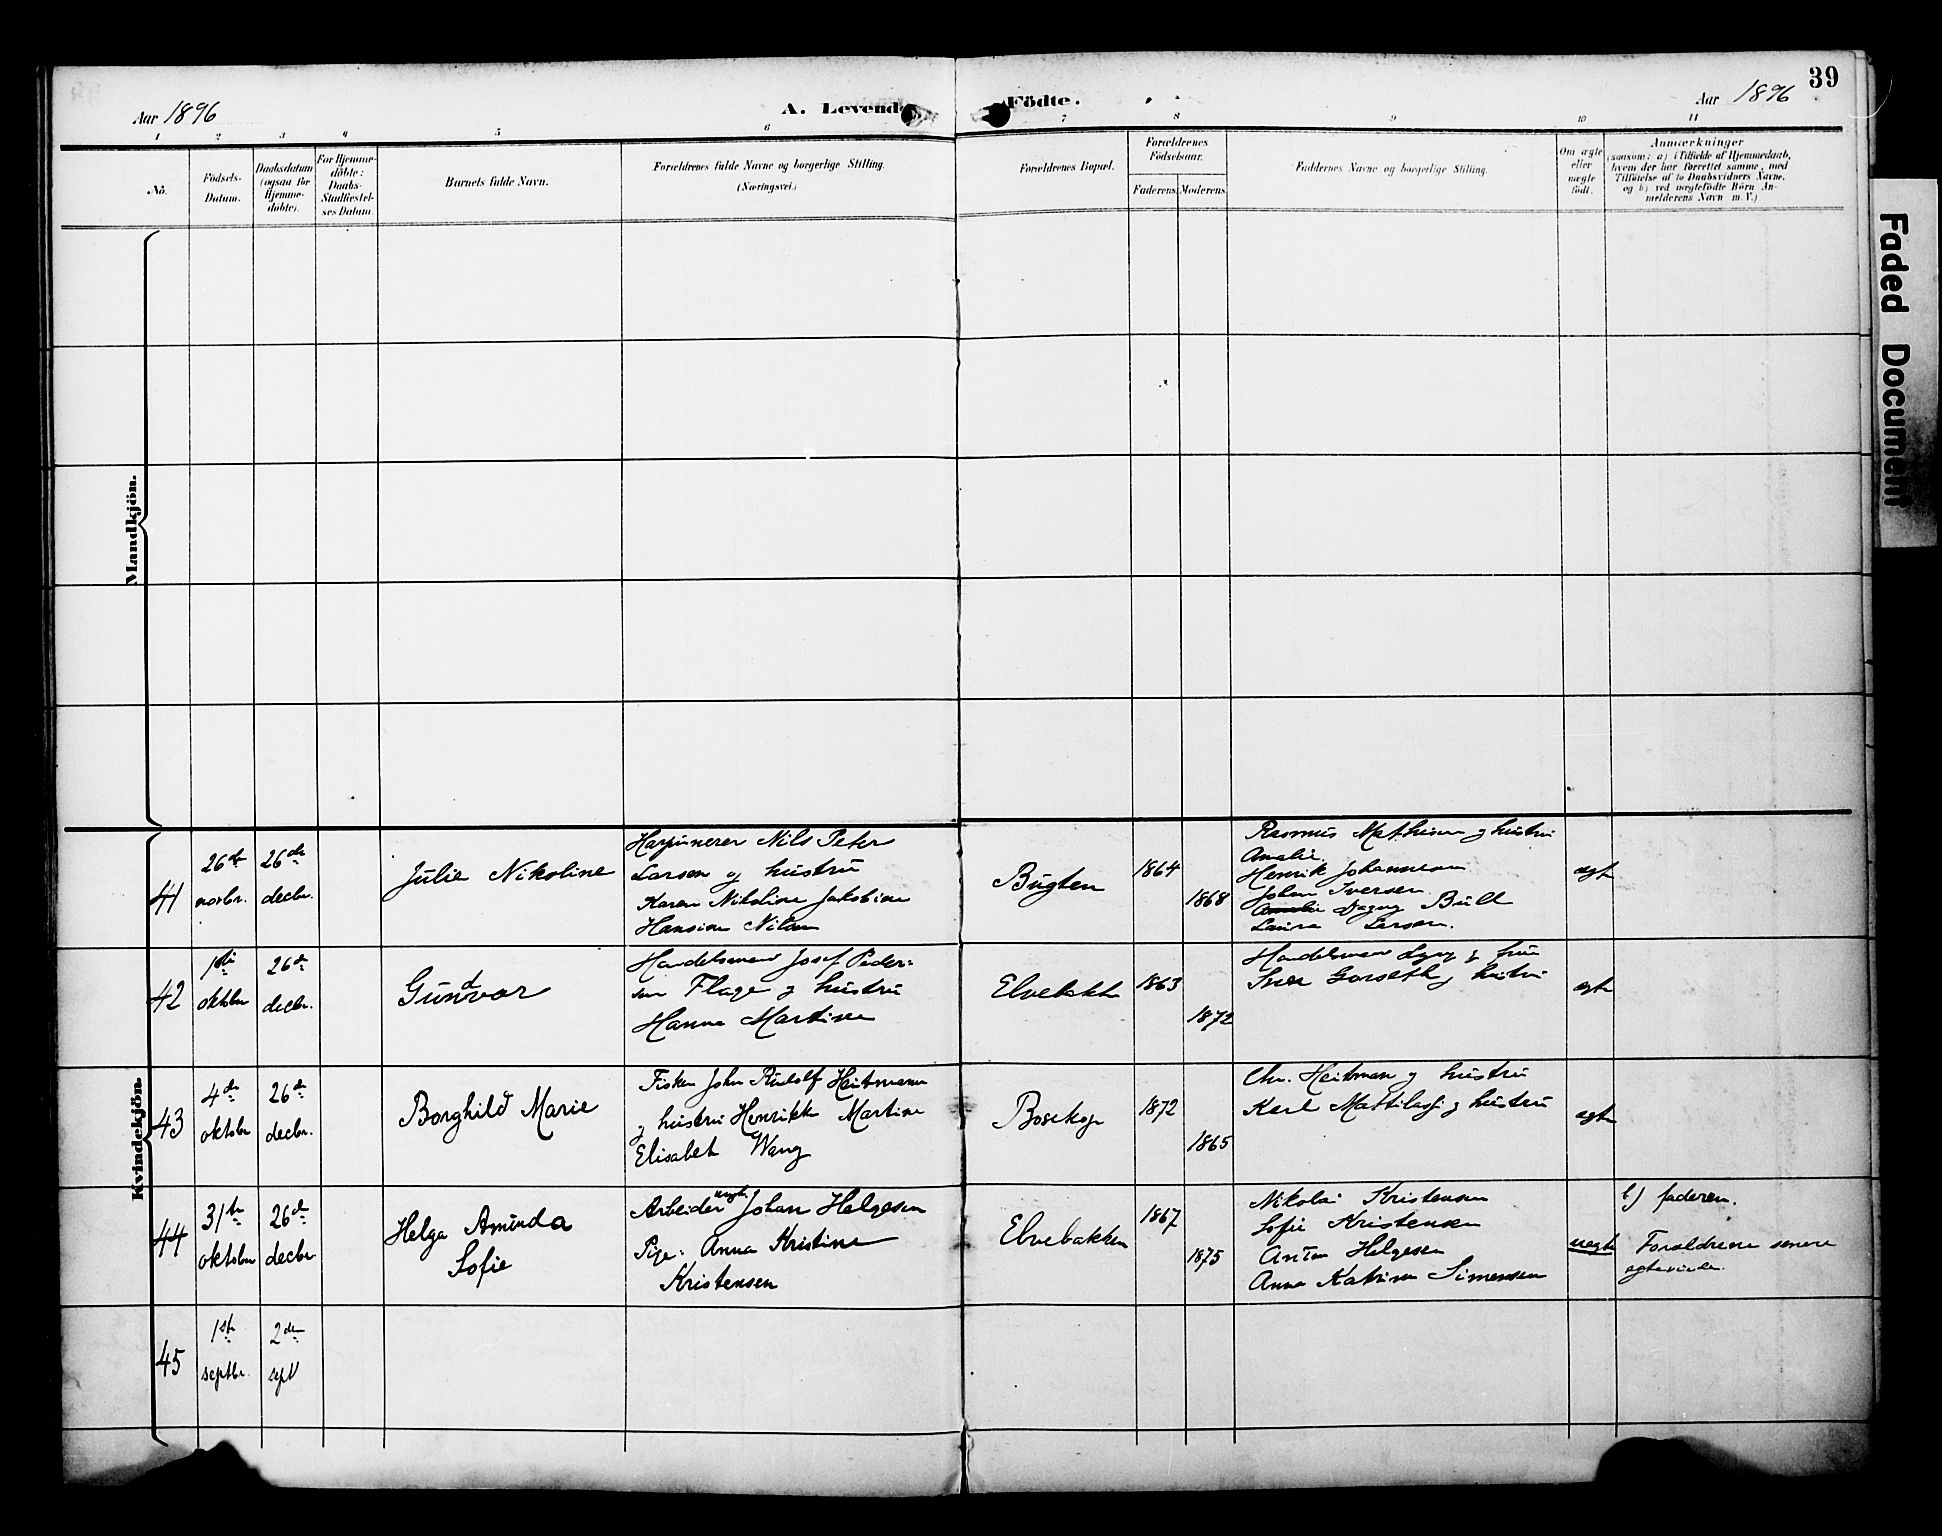 39
Aar 1896
A. Levende
Födte.
Aar 1896
1 2 3 4 5 6 7 8 9 10 11
No.
Födsels-
Datum.
Daabsdatum
(ogsaa for
Hjemme-
döbte).
For Hjemme-
döbte:
Daabs-
Stadfæstel-
ses Datum.
Barnets fulde Navn.
Forældrenes fulde Navne og borgerlige Stilling.
(Næringsvei.)
Forældrenes Bopæl.
Forældrenes
Födselsaar.
Faderens
Moderens
Faddernes Navne og borgerlige Stilling.
Om ægte
eller
uægte
født.
Anmærkninger
(saasom: a) i Tilfælde af Hjemmedaab,
hvem der har forrettet samme, med
Tilføielse af to Daabsvidners Navne,
og b) ved uægtefödte Börn An-
melderens Navn m. V.)
Mandkjön.
Kvindekjön.
41
26de
novbr.
26de
decbr.
Julie Nikoline
Harpunerer Nils Peter
Larsen og hustru
Karen Nikoline Jakobine
Hansine Nilsen
Bugten
1864
1868
Rasmus Mathisen og hustru
Amalie.
Henrik Johannesen
Johan Iversen
Dagny Bull
Laura Larsen.
ægte
42
1ste
oktober
26de
decbr.
Gundvor
Handelsmand Josef Peder-
sen Flage og hustru
Hanna Martine
Elvebakken
1863
1872
Handelsmand Lyng og frue
og hustru
ægte
43
4de
oktober
26de
decbr.
Borghild Marie
Fisker John Rudolf Heitmann
og hustru Henrikke Martine
Elisabet Wang
Bosekop
1872
1865
Chr. Heitman og hustru
Karl Mattilasji og hustru
ægte
44
31te
oktober
26de
decbr
Helga Aminda
Sofie
Arbeider ungk. Johan Helgesen
Pige: Anna Kristine
Kristensen
Elvebakken
1867
1875
Nikolai Kristensen
Sofie Kristensen
Anton Helgesen
Anna Katrine Simensen
uægte
b) faderen.
Forældrene senere
ægteviede.
45
1ste
septbr.
2den
sept
Faded Document